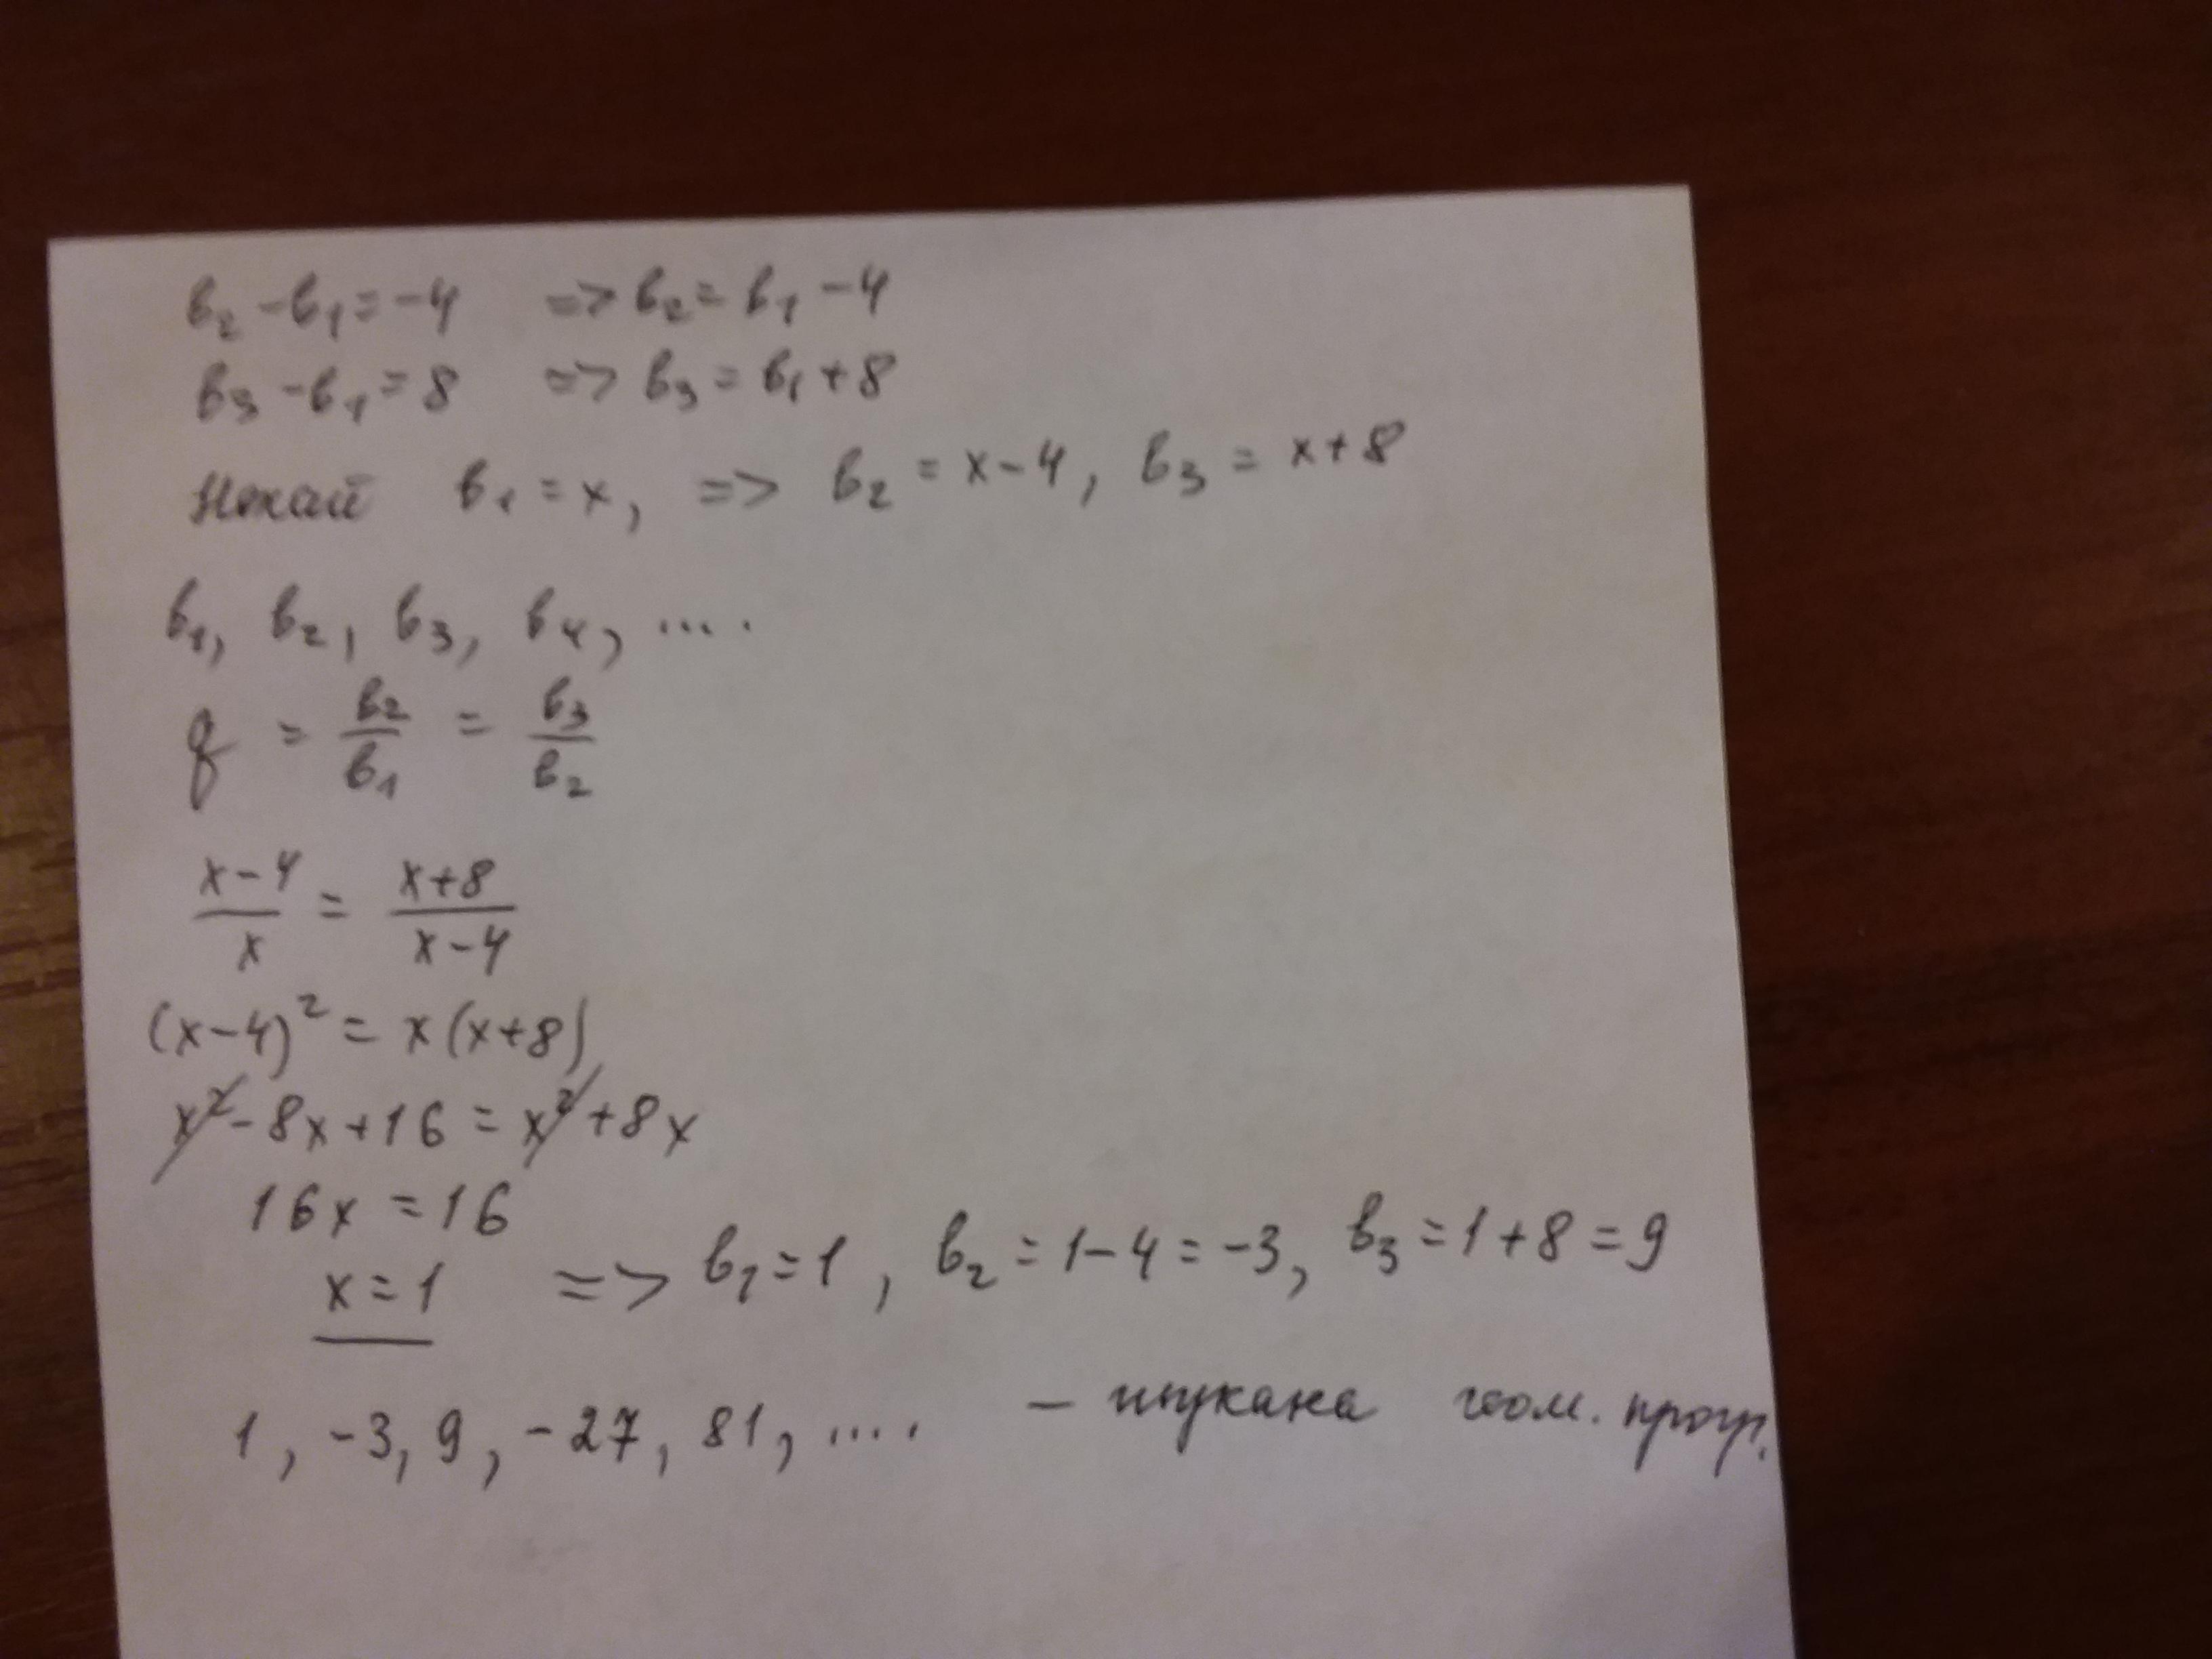 в₂ - в₁ = -4 => в₂ = в₁ - 4
в₃ - в₁ = 8 => в₃ = в₁ + 8
Нехай в₁ = x, => в₂ = x - 4, в₃ = x + 8
в₁, в₂, в₃, в₄, ....
q = в₂/в₁ = в₃/в₂
(x-4)/x = (x+8)/(x-4)
(x-4)² = x(x+8)
x² - 8x + 16 = x² + 8x
16x = 16
x = 1 => в₁ = 1, в₂ = 1 - 4 = -3, в₃ = 1 + 8 = 9
1, -3, 9, -27, 81, .... - шукана геом. прогр.